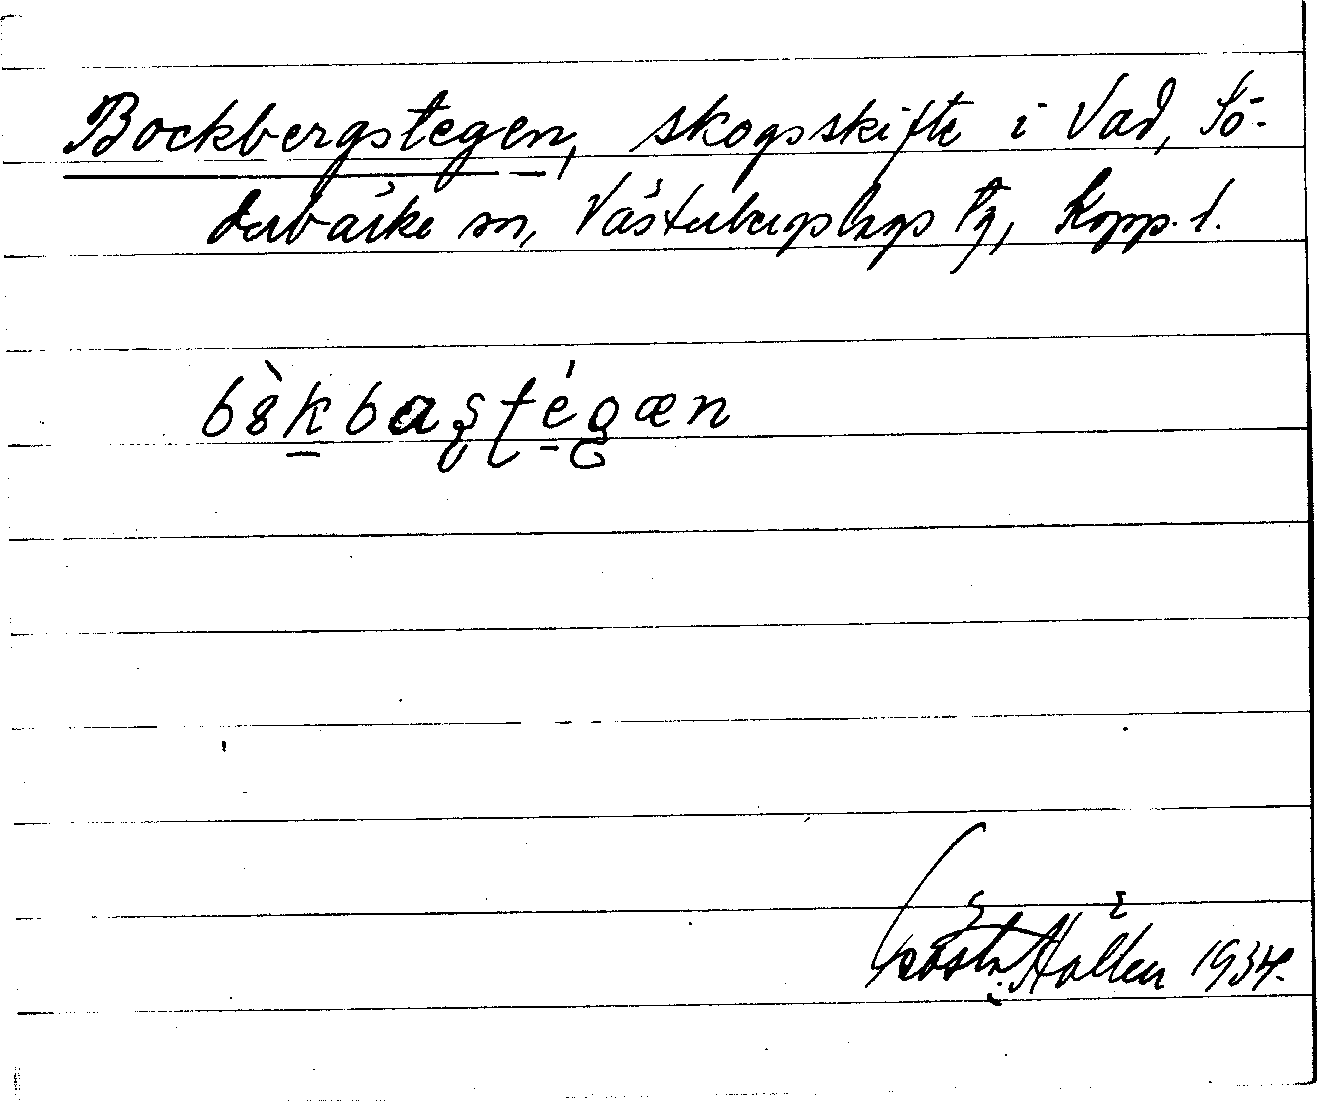 Bockbergstegen, skogsskifte i Vad, Sö-
derbärke sn, Västerbergslags tg, Kopp. l.
b8̀k̲baʂʈégæn
Gösta Hallén 1934.